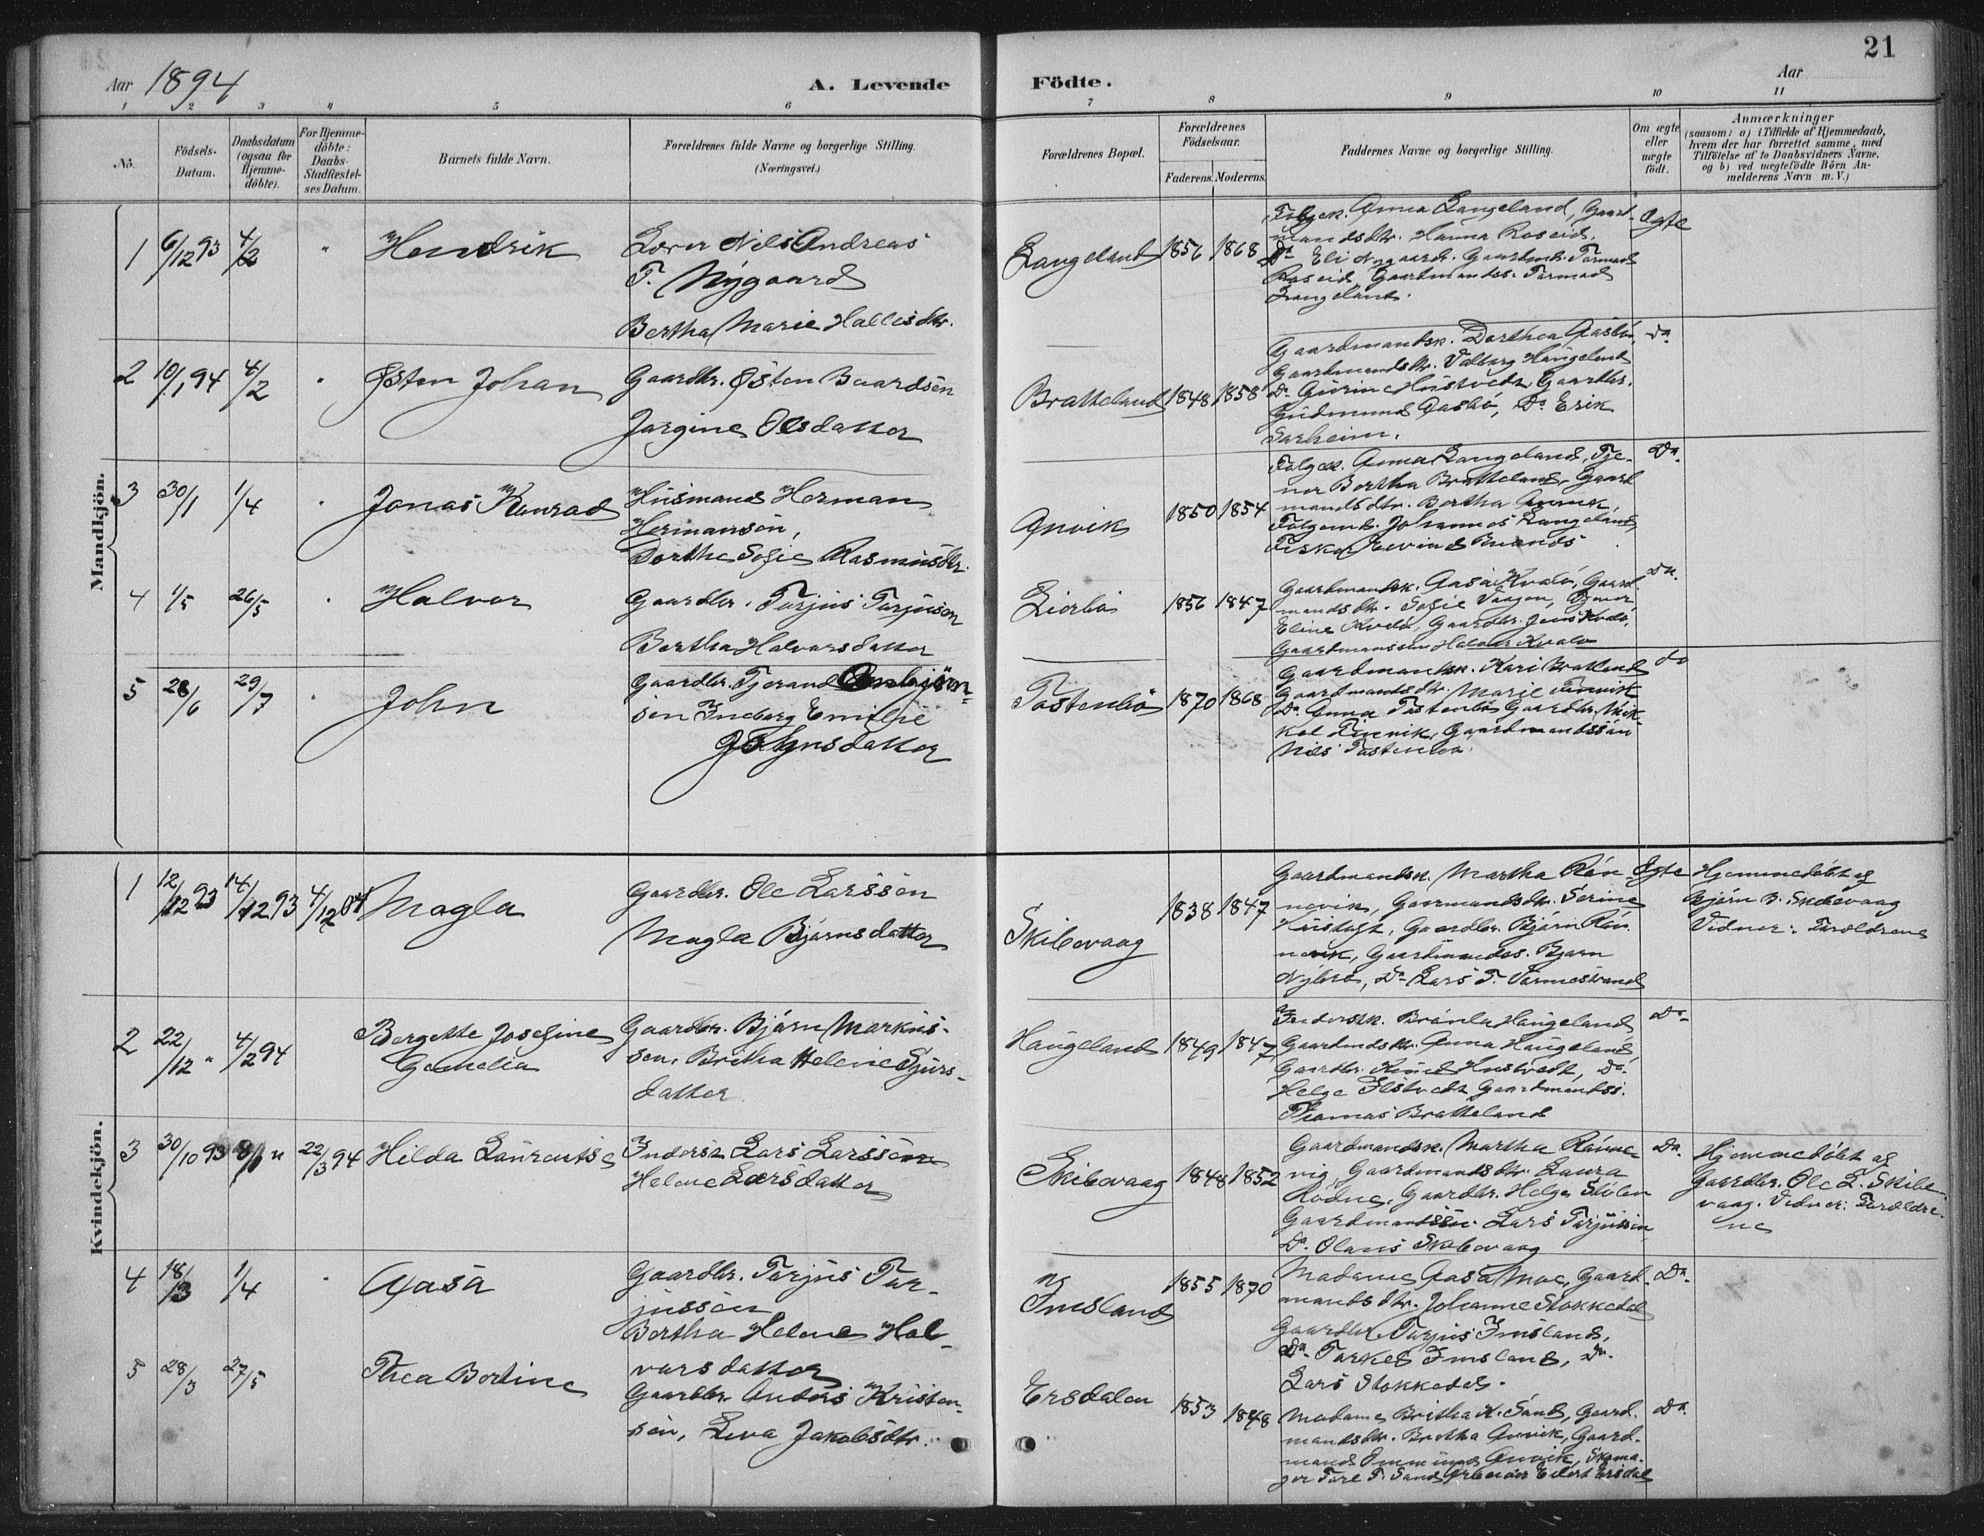 21
Aar 1894
A. Levende
Födte.
Aar
1 2 3 4 5 6 7 8 9 10 11
No.
Födsels-
Datum.
Daabsdatum
(ogsaa for
Hjemme-
döbte).
For Hjemme-
döbte:
Daabs-
Stadfæstel-
ses Datum.
Barnets fulde Navn.
Forældrenes fulde Navne og borgerlige Stilling.
(Næringsvei.)
Forældrenes Bopæl.
Forældrenes
Födselsaar.
Faderens. Moderens.
Faddernes Navne og borgerlige Stilling.
Om ægte
eller
uægte
födt.
Anmærkninger
(saasom: a) i Tilfælde af Hjemmedaab,
hvem der har forrettet samme, med
Tilföielse af to Daabsvidners Navne.
og b) ved uægtefödte Börn An-
melderens Navn m. V.)
Mandkjön.
1 6/12 93 4/2 " Hendrik
Lærer Nils Andreas
T. Nygaard
Bertha Marie Hallisdtr.
Langeland 1856 1868
Anna Langeland, Gaard-
mandsdtr. Hanna Roseid,
Do Eli Nygaard, Gaardmds. Tormod
Roseid, Gaardmandss. Tormod
Langeland.
Ægte
2 10/1 94 4/2 " Østen Johan
Gaardbr. Østen Baardsen
Jorgine Olsdatter
Bratteland 1848 1858
Gaardmandsk. Dorthea Aasbø,
Gaardmandsdtr. Valborg Haugeland
Do Gurine Hustvedt, Gaardbr.
Gudmund Aasbø, Do Erik
Sørheim.
Do
3 30/1 1/4 " Jonas Konrad
Husmand Herman
Hermansen,
Dorthe Sofie Rasmusdtr.
Anvik 1850 1854
Anna Langeland, Tje-
ner Bertha Bratteland, Gaard
mandsdtr. Bertha Anvik,
Johannes Langeland
Fisker Eevind
Do
4 1/5 26/5 " Halvor
Gaardbr. Torjus Torjusen
Bertha Halvorsdatter
Lierbø 1856 1847
Gaardmandsk. Aasa Kvalø, Gaard
mandsdtr. Sofie Vaagen, Tjener
Eline Kvalø, Gaardbr. Jens Kvalø,
Gaardmandssøn Halvor Kvalø
Do
5 28/6 29/7 " John
Gaardbr. Tjerand Ambjørn-
sen Ingeborg Emilie
Johnsdatter
Tostenbø 1870 1868
Gaardmandsk. Kari
Gaardmandsdtr. Marie Finvik
Do Anna Tostenbø Gaardbr. Mik-
kel Finvik, Gaardmandssøn
Nils Tostenbø.
do
Kvindekjön.
1 12/12 93 14/12 93 4/12 Magla
Gaardbr. Ole Larssen
Magla Bjørnsdatter
Skibevaag 1838 1847
Gaardmandsk. Martha Røn-
nevik, Gaarmandsdtr. Serine
Gaardbr. Bjørn Røn
nevik, Gaardmandss. Bjørn
Nybrø, Do Lars T. Vormestrand
Ægte
Hjemmedøbt af
Bjørn B. Skibevaag
Vidner: Forældrene
2 22/12 " 4/2 94
Bergette Josefine
Gemelia
Gaardbr. Bjørn Markus-
sen, Britha Helene Sjurs-
datter
Haugeland 1849 1847
Inderstk. Brønla Haugeland
Gaardmdsdtr. Anna Haugeland,
Gaardbr. Knud Hustvedt, Do
Helge Hustvedt Gaardmandss.
Thomas Bratteland
Do
3 30/10 93 " 22/3 94 Hilda Laurentse
Inderst Lars Larssen
Helene Larsdatter
Skibevaag 1848 1852
Gaardmandsk. Martha Rønne
vig Gaardmandsdtr. Laura
Rødne, Gaardbr. Helge Stølen
Gaardmandssøn Lars Torjussen
Do Olaus Skibevaag
Do
Hjemmedøbt af
Gaardbr. Ole L. Skibe-
vaag. Vidner: Forældre-
ne
4 18/3 1/4 " Aasa
Gaardbr. Torjus Tor-
jussen
Bertha Helene Hal-
vorsdatter
Imsland 1855 1870
Madame Aasa Moe, Gaard-
mandsdtr. Johanne Stokkedal
Gaardbr. Torjus Imsland,
Do Torkel Imsland, Do
Lars Stokkedal.
Do
5 28/3 27/5 Thea Bertine
Gaardbr. Anders Kristen-
sen, Lena Jakobsdtr.
Ersdalen 1853 1848
Madame Britha K. Sand, Gaard-
mandsdtr. Bertha Anvik, Gaard-
mand Ommund Anvik, Skoma-
ger Tore T. Sand, Arbeider Eilert Ersdal
Do